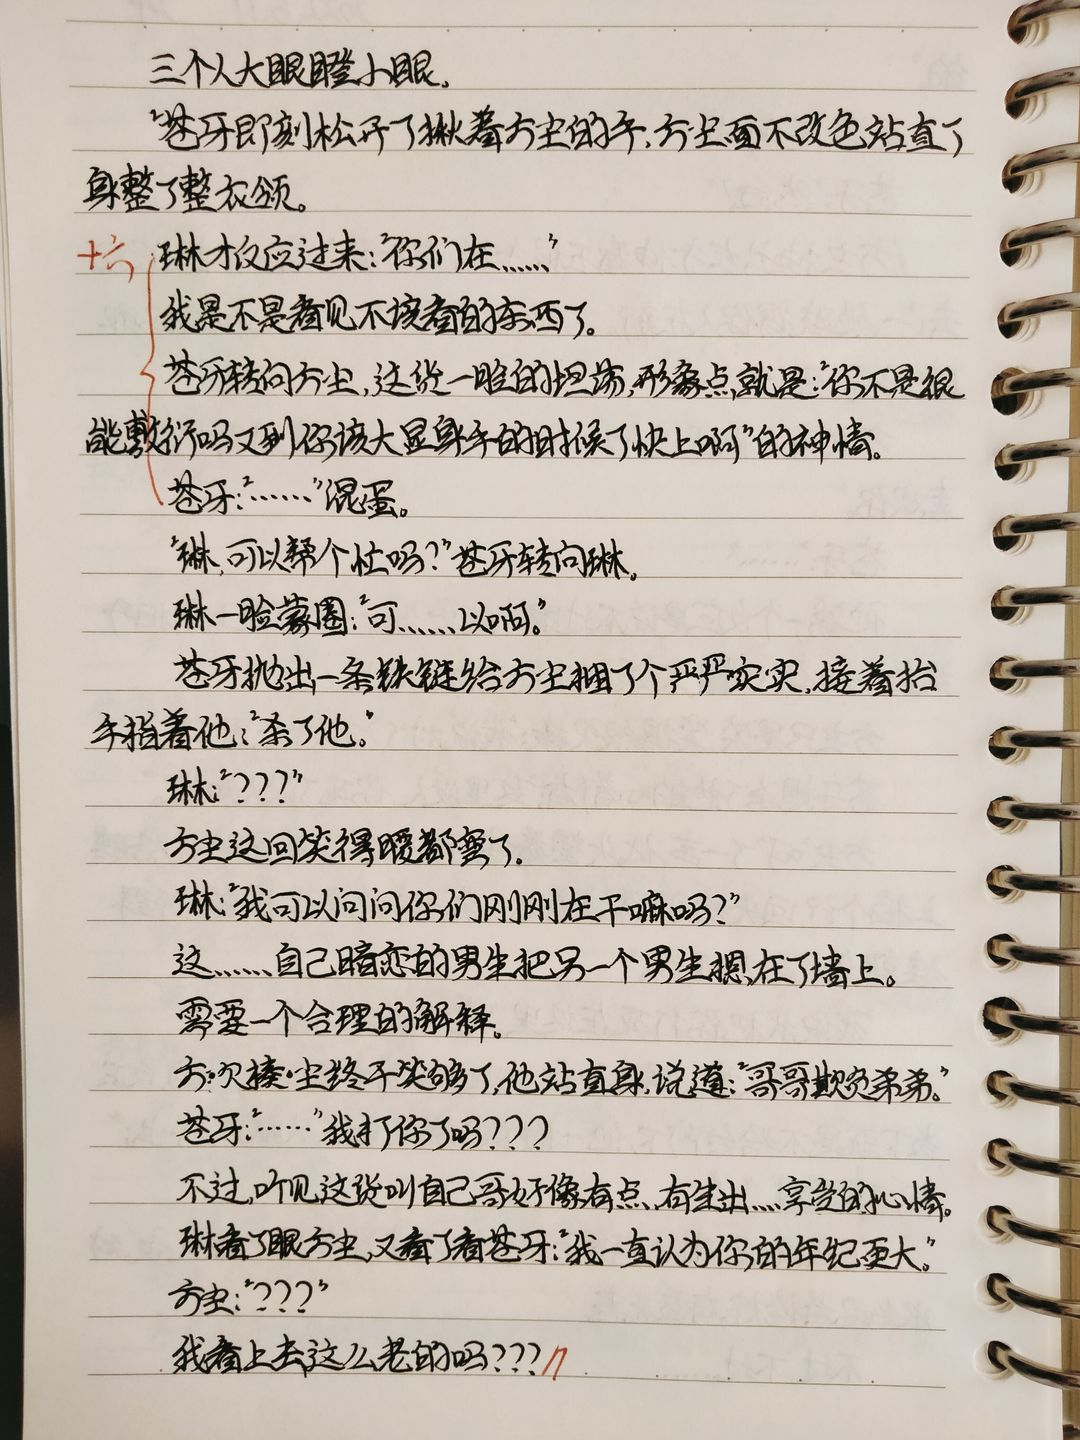 三个人大眼瞪小眼。
苍牙即刻松开了揪着方尘的手，方尘面不改色站直了
身整了整衣领。
十六 琳才反应过来：“你们在……”
我是不是看见不该看的东西了。
苍牙转向方尘，这货一脸的坦荡，形象点就是：“你不是很
能敷衍吗又到你该大显身手的时候了快上啊”的神情。
苍牙：“……”混蛋。
“琳，可以帮个忙吗？”苍牙转向琳。
琳一脸蒙圈：“可……以啊。”
苍牙抛出一条铁链给方尘捆了个严严实实，接着抬
手指着他：“杀了他。”
琳：“？？？”
方尘这回笑得腰都弯了。
琳：“我可以问问你们刚刚在干嘛吗？”
这……自己暗恋的男生把另一个男生摁在了墙上。
需要一个合理的解释。
方·欠揍·尘终于笑够了，他站直身，说道：“哥哥欺负弟弟。”
苍牙：“……”我打你了吗？？？
不过，听见这货叫自己哥好像有点，有生出……享受的心情。
琳看了眼方尘，又看了看苍牙：“我一直认为你的年纪更大。”
方尘：“？？？”
我看上去这么老的吗？？？